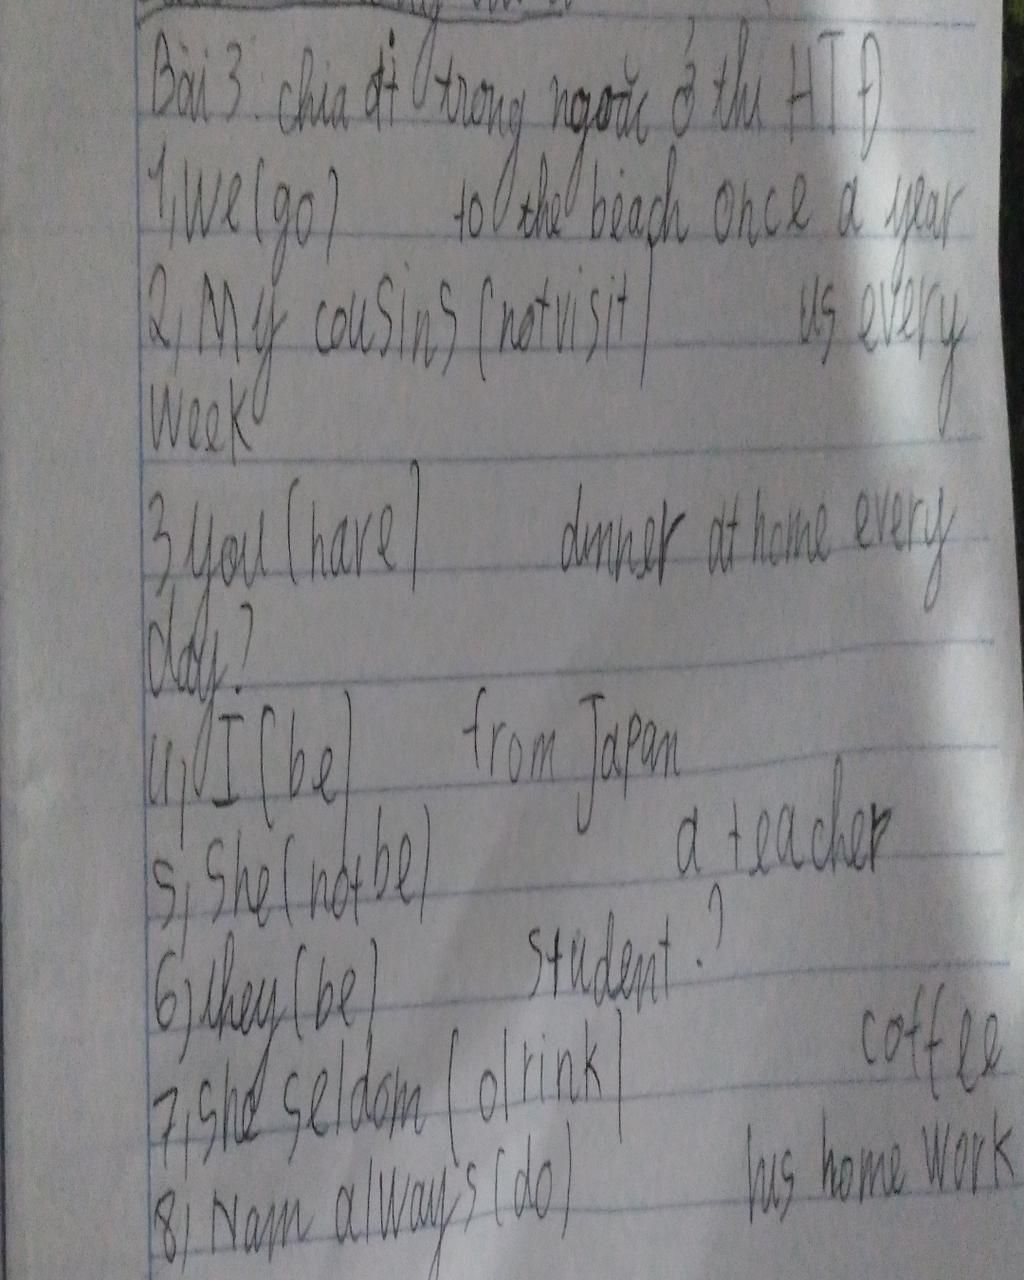 Bài 3: chia đt trong ngoặc ở thì HTĐ
1, We (go) to the beach once a year
2, My cousins (not visit) us every
week
3 you (have) dinner at home every
day?
4, I (be) from Japan
5, She (not be) a teacher
6, they (be) student?
7, She seldom (drink) coffee
8, Nam always (do) his home work